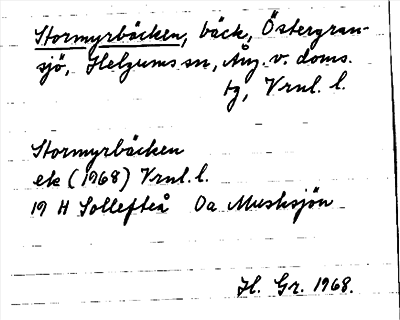 Stormyrbäcken, bäck, Östergran-
sjö, Helgums sn, Ång. v. doms.
tg, Vrnl. l.
Stormyrbäcken
ek (1968) Vrnl. l.
19 H Sollefteå Oa Musksjön
Hl. Gr. 1968.